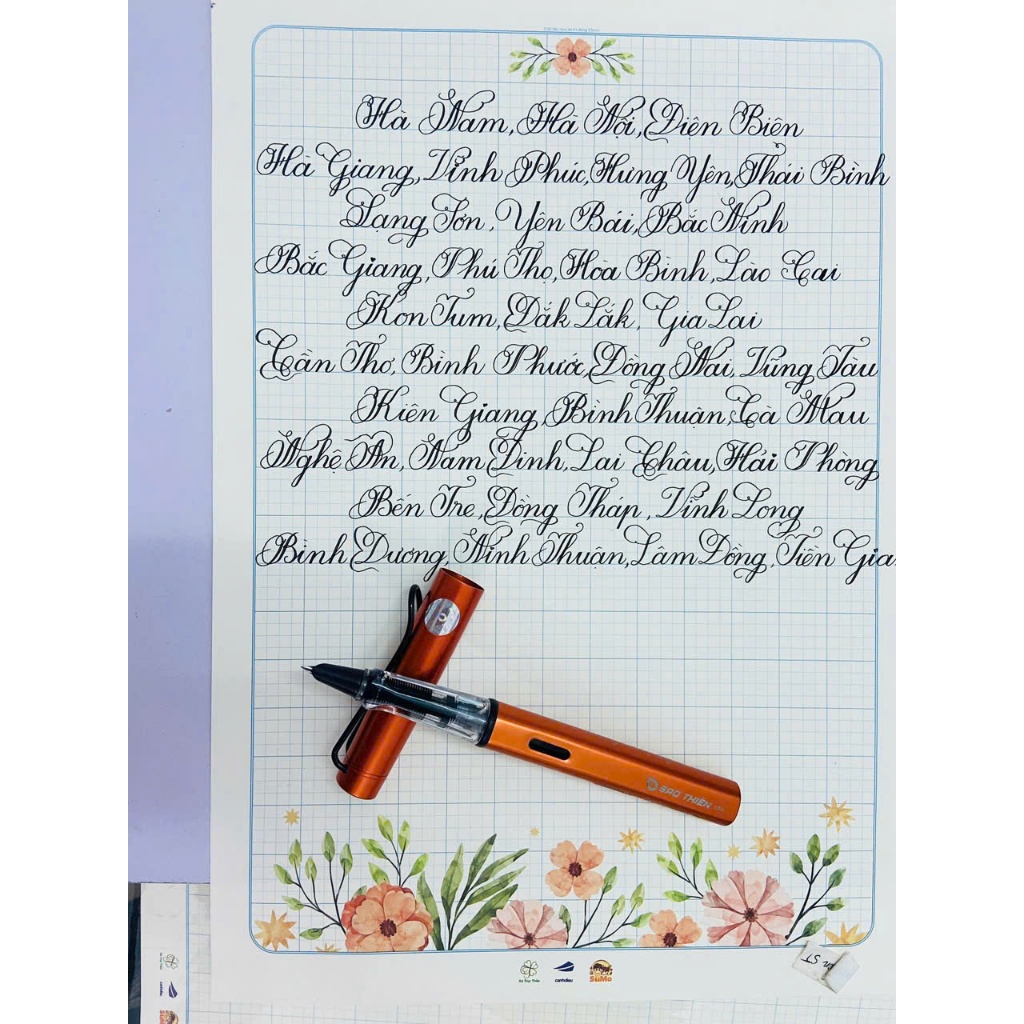 Hà Nam, Hà Nội, Điên Biên
Hà Giang, Vĩnh Phúc, Hưng Yên, Thái Bình
Lạng Sơn, Yên Bái, Bắc Ninh
Bắc Giang, Phú Thọ, Hòa Bình, Lào Cai
Kon Tum, Đắk Lắk, Gia Lai
Cần Thơ, Bình Phước, Đồng Nai, Vũng Tàu
Kiên Giang, Bình Thuận, Cà Mau
Nghệ An, Nam Định, Lai Châu, Hải Phòng
Bến Tre, Đồng Tháp, Vĩnh Long
Bình Dương, Ninh Thuận, Lâm Đồng, Tiền Gia
SAO THIÊN
canhdieu
SuMo